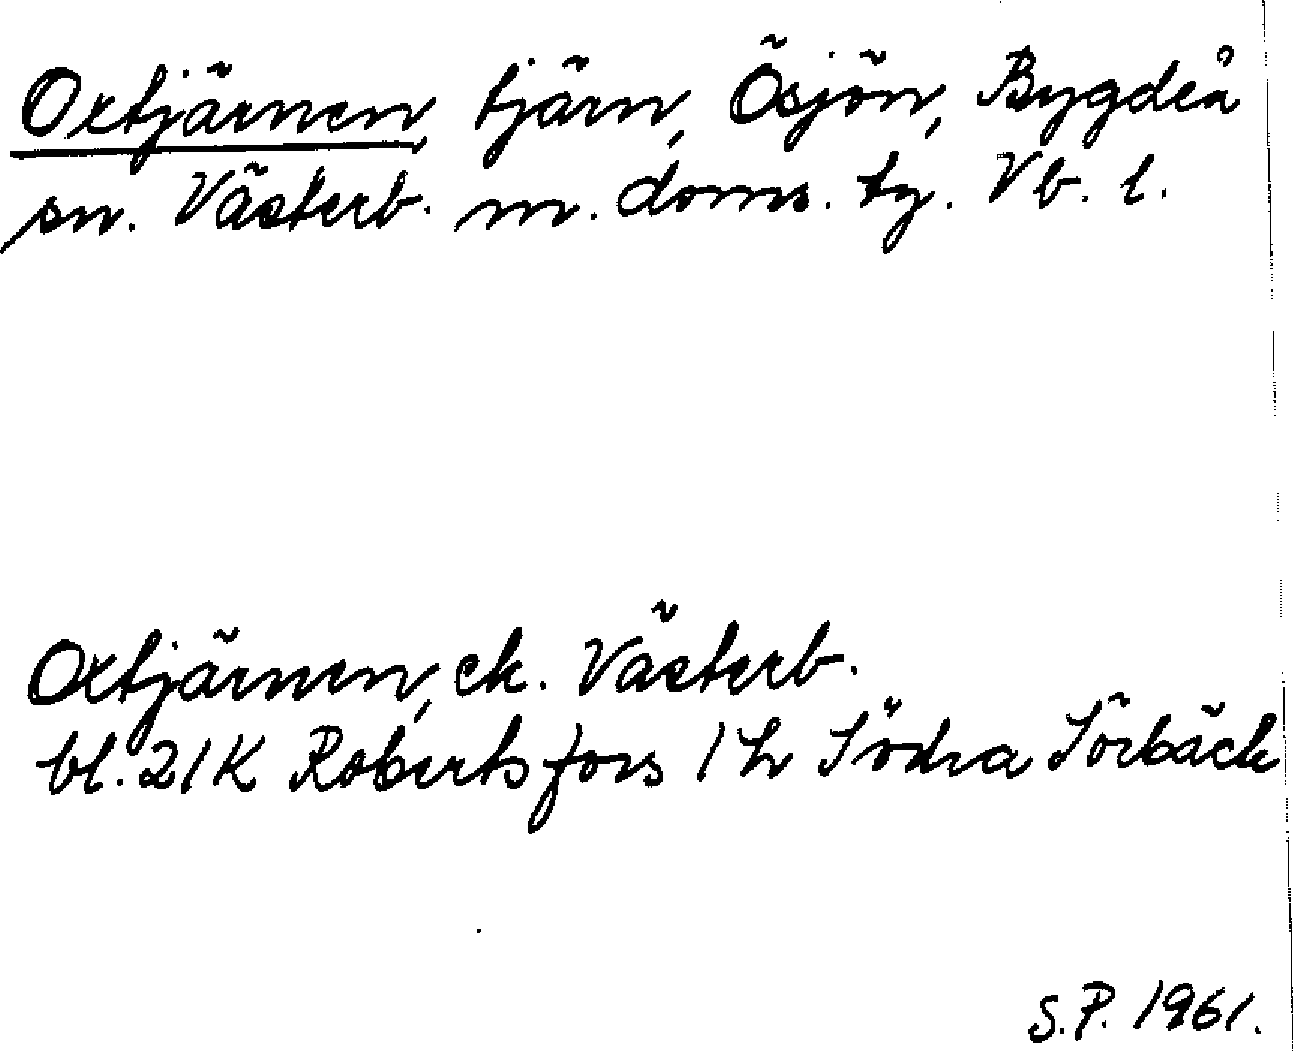 Oxtjärnen, tjärn, Ösjön, Bygdeå
sn. Västerb. m. doms. tg. Vb. l.
Oxtjärnen, ek. Västerb.
bl. 21K Robertsfors 1h Södra Sörbäck
S.P. 1961.